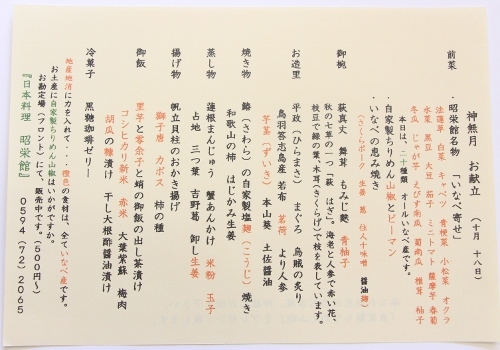 神無月 お献立 (十月 十八日)
前菜 ・昭栄館名物 「いなべ寄せ」
法蓮草 白菜 キャベツ 青梗菜 小松菜 オクラ
水菜 黒豆 大豆 茄子 ミニトマト 薩摩芋 春菊
冬瓜 じゃが芋 えびす南瓜 菊南瓜 椎茸 柚子
本日は、二十種類 オールいなべ産です。
・自家製ちりめん山椒とピーマン
・いなべの恵み焼き
(さくらポーク 生姜 葱 仕入十味噌 醤油麹)
御椀 萩真丈 舞茸 もみじ麩 青柚子
秋の七草の一つ「萩 はぎ」。海老と人参で赤い花、
枝豆で緑の葉・木耳(きくらげ)で枝を表しています。
お造里 平政(ひらまさ) まぐろ 烏賊の炙り
鳥羽答志島産 若布 茗荷 より人参
芋茎(ずいき) 本山葵 土佐醤油
焼き物 鰆(さわら)の自家製塩麹(こうじ)焼き
和歌山の柿 はじかみ生姜
蒸し物 蓮根まんじゅう 蟹あんかけ 米粉 玉子
占地 三つ葉 吉野葛 卸し生姜
揚げ物 帆立貝柱のおかき揚げ
獅子唐 カボス 柿の種
御飯 里芋と零余子と蛸の御飯の出し茶漬け
コシヒカリ新米 赤米 大葉紫蘇 梅肉
胡瓜の糠漬け 干し大根酢醤油漬け
冷菓子 黒糖珈琲ゼリー
地産地消に力を入れて・・・橙色の食材は、全ていなべ産です。
お土産に自家製ちりめん山椒はいかがですか。
お勘定場(フロント)にて、販売中です。(500円~)
『日本料理 昭栄館』 0594(72)2065